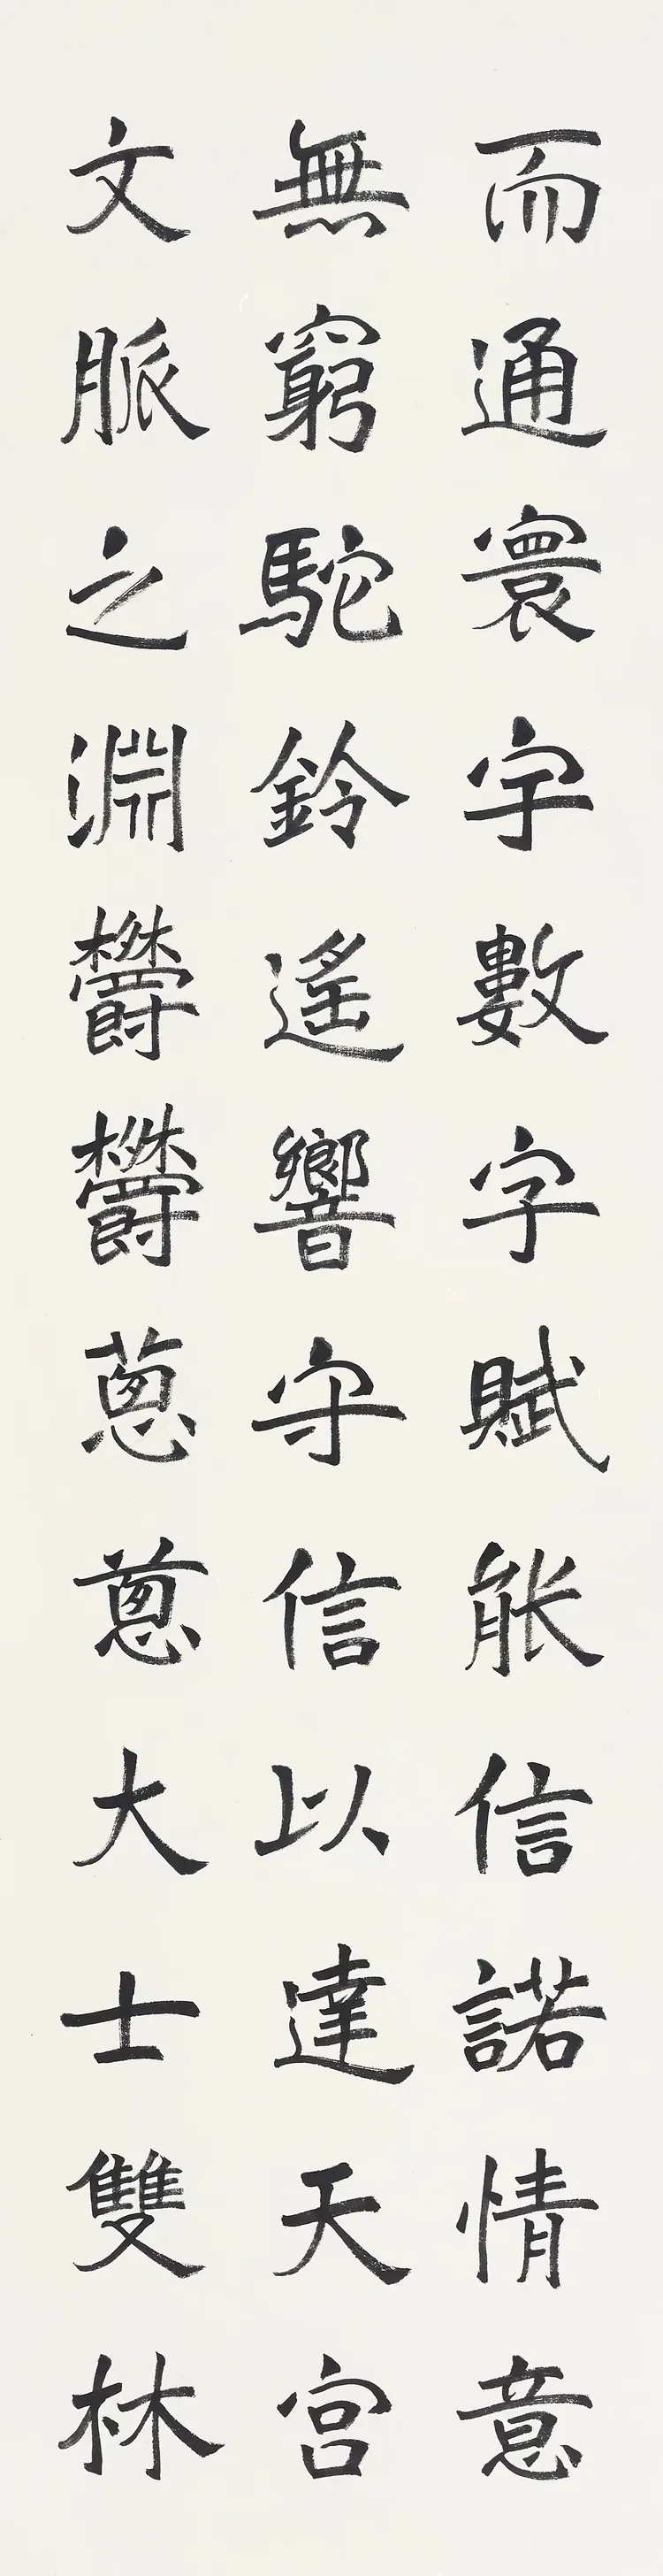 而通寰宇數字賦能信諾情意
無窮駝鈴遙響守信以達天宮
文脈之淵欝欝蔥蔥大士雙林